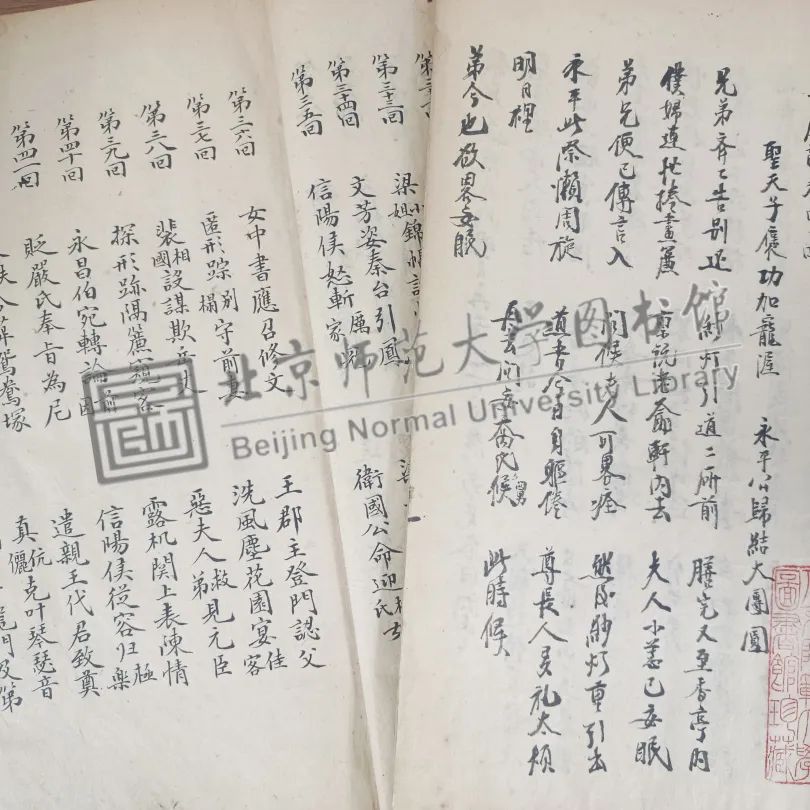 聖天子褒功加寵渥 永平公歸結大團圓
兄弟齊々告別还 紗灯引道二所前 膳完又至香亭内
僕婦連忙捲畫簾 稟説 軒内去 夫人小恙已安眠
弟兄便已傳言入 问候夫人可畧痊 然後紗灯重引去
永平此際懶周旋 道書今日身軀倦 尊長人多礼太煩
明日裡 再去问安 候 此時候
弟今也欲畧安眠
第三十三回 梁小姐錦
第三十四回 文芳姿秦台引鳳 衛國公命迎
第三十五回 信陽侯怒斬家
第三六回 女中書應召修文 王郡主登門認父
第三七回 匿形踪別榻守前 洗風塵花園宴佳客
第三八回 裴相國設謀欺 惡夫人救弟見元臣
第三九回 探形跡隔簾窺客 露机関上表陳情
第四十回 永昌伯宛轉論 信陽侯從容归極樂
第四一回 貶嚴氏奉旨為尼 遣親王代君致奠
鴛鴦塚 真伉儷克叶琴瑟音
龍門及第
北京师范大学图书馆
Beijing Normal University Library